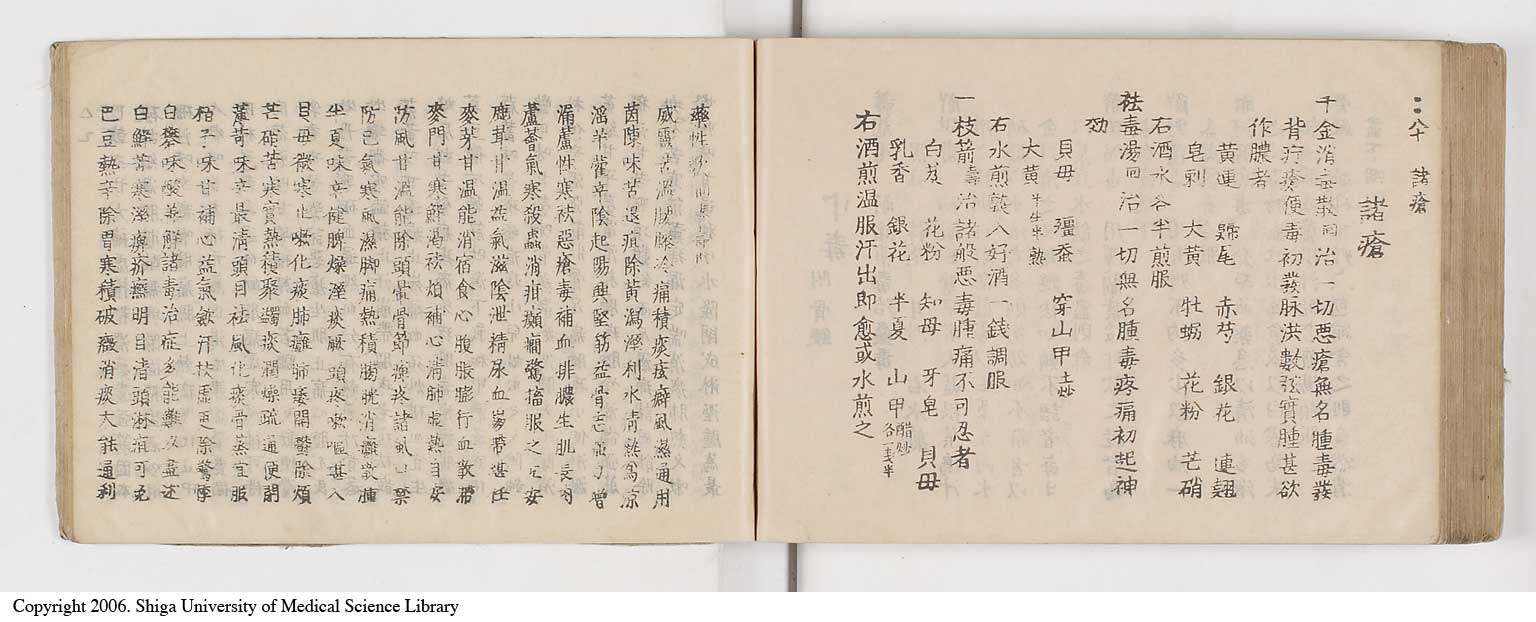 二八十 諸瘡
諸瘡
千金消毒散 回 治一切悪瘡無名腫毒發
背疔瘡便毒初發脉洪數弦實腫甚欲
作膿者
黄連 歸尾 赤芍 銀花 連翹
皂刺 大黄 牡蛎 花粉 芒硝
右酒水各半煎服
祛毒湯 回 治一切無名腫毒疼痛初起神
効
貝母 殭蚕 穿山甲 土炒
大黄 半生半熟
右水煎熟入好酒一銭調服
一枝箭 壽 治諸般悪毒腫痛不可忍者
白芨 花粉 知母 牙皂 貝母
乳香 銀花 半夏 山甲 醋炒 各一戔半
右酒煎温服汗出即愈或水煎之
藥性歌
威靈苦温腰膝冷痛積痰痃癖風濕通用
茵陳味苦退疸除黄瀉湿利水清熱為凉
淫羊藿辛陰起陽興堅筋益骨志高力增
漏蘆性寒祛惡瘡毒補血排膿生肌長肉
蘆薈氣寒殺蟲消疳癲癇驚搐服之立安
鹿茸甘温益氣滋陰泄精尿血崩帶甚任
麥芽甘温能消宿食心腹脹膨行血散滯
麥門甘寒解渇祛煩補心清肺虚熱自安
防風甘温能除頭暈骨節痺疼諸風口禁
防已氣寒風濕脚痛熱積膀胱消癰散腫
半夏味辛健脾燥湿痰厥頭疼嗽嘔堪入
貝母微寒止嗽化痰肺癰肺痿開鬱除煩
芒硝苦寒實熱積聚蠲痰潤燥疏通便閉
藁本味辛最清頭目祛風化痰骨蒸宜服
柏子味甘補心益氣斂汗扶虚更除驚悸
白礬味酸善解諸毒治症多能難以盡述
白鮮苦寒湿痺疥癬明目清頭淋疸可免
巴豆熱辛除胃寒積破癥消痰大能通利